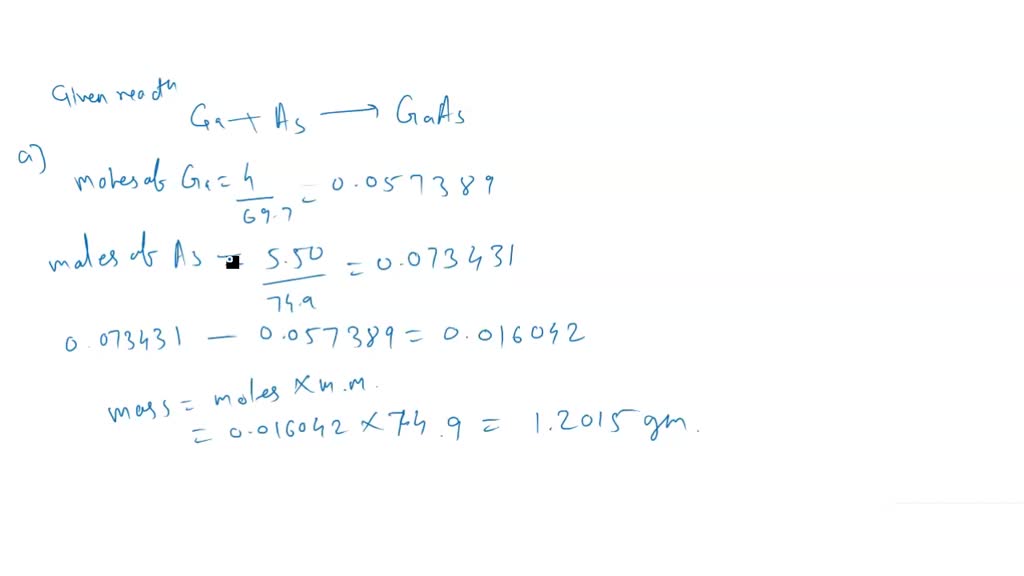 Given reactn
Ga + As ⟶ GaAs
a)
moles of Ga = 4 / 69.7 = 0.057389
moles of As = 5.50 / 74.9 = 0.073431
0.073431 – 0.057389 = 0.016042
mass = moles × m.m.
= 0.016042 × 74.9 = 1.2015 gm.